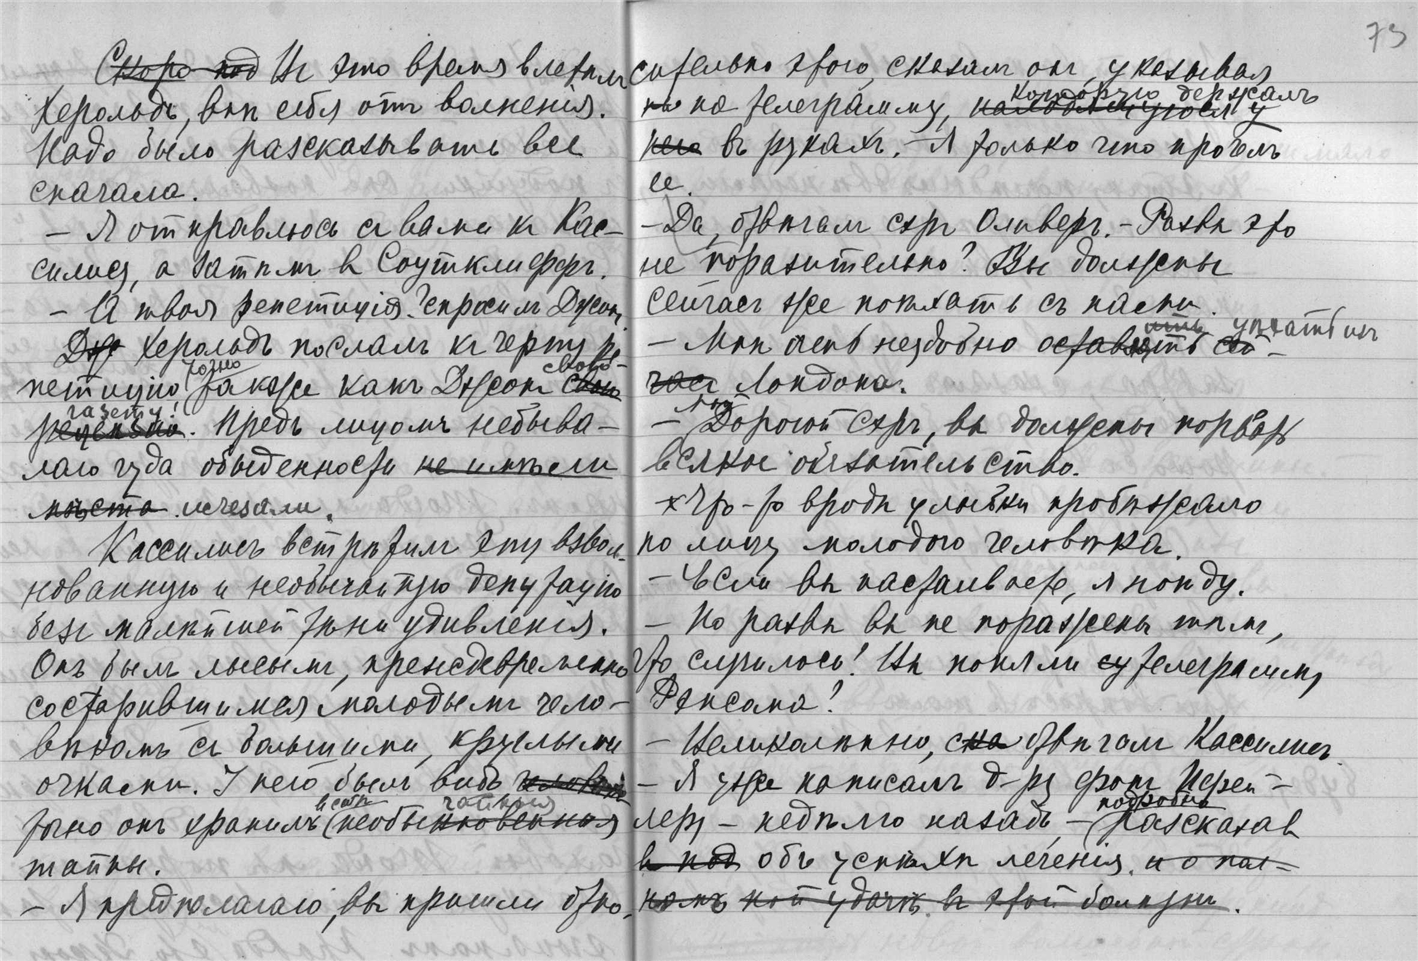 Скоро под Въ это время влетелъ
Херольдъ, внѣ себя отъ волненія.
Надо было разсказывать все
сначала.
— Я отправлюсь съ вами къ Кас-
силису, а затѣмъ в Соутклиффъ.
— А твоя репетиція? спросилъ Джонъ.
Дж Херольдъ послалъ къ черту ре-
петицію точно также какъ Джонъ свою
газету!
рецензію. Предъ лицомъ небыва-
лаго чуда обыденности не имѣли
мѣста исчезали.
Кассилисъ встрѣтилъ эту взвол-
нованную и необычайную депутацію
безъ малѣйшей тѣни удивленія.
Онъ былъ лысымъ, преждевременно
состарившимся молодымъ чело-
вѣкомъ съ большими, круглыми
очками. У него былъ видъ человѣка
точно онъ хранилъ въ себѣ необыкновенныя
тайны.
— Я предполагаю, вы пришли отно-
73
сительно этого, сказалъ онъ, указывая
на телеграмму, которую держалъ
него въ рукахъ. — Я только что прочелъ
ее.
— Да, отвѣчалъ сэръ Оливеръ. — Развѣ это
не поразительно? Вы должны
сейчасъ же поѣхать съ нами.
— Мнѣ очень неудобно оставлять сей-
часъ Лондонъ.
— Дорогой сэръ, вы должны порвать
всякое обязательство.
Что-то вродѣ улыбки пробѣжало
по лицу молодого человѣка.
— Если вы настаиваете, я пойду.
— Но развѣ вы не поражены тѣмъ,
что случилось! Вы поняли телеграмму
Рэнсома?
— Великолѣпно, отвѣчалъ Кассилисъ.
— Я уже написалъ д-ру фонъ
леру — недѣлю назадъ — подробно разсказавъ
объ успѣхѣ леченія. и о пол-
номъ удачѣ въ этой болѣзни.